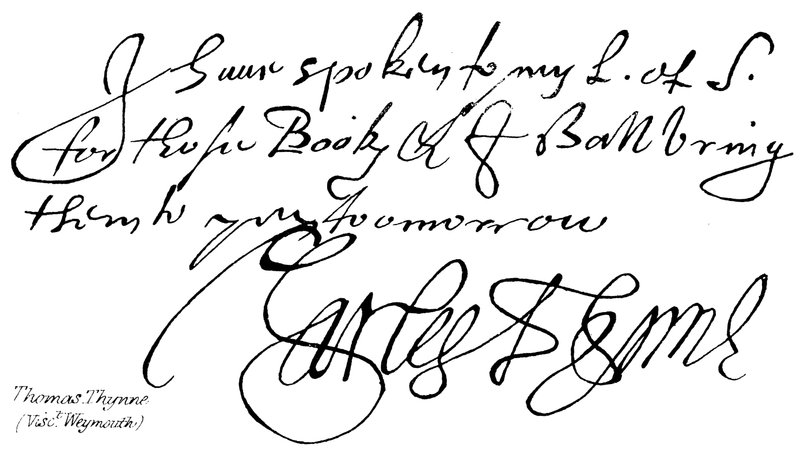 I haue spoken to my L. of S.
for those Books & I shall bring
them to you toomorrow
Charles Thynne
Thomas Thynne
(Visct. Weymouth)